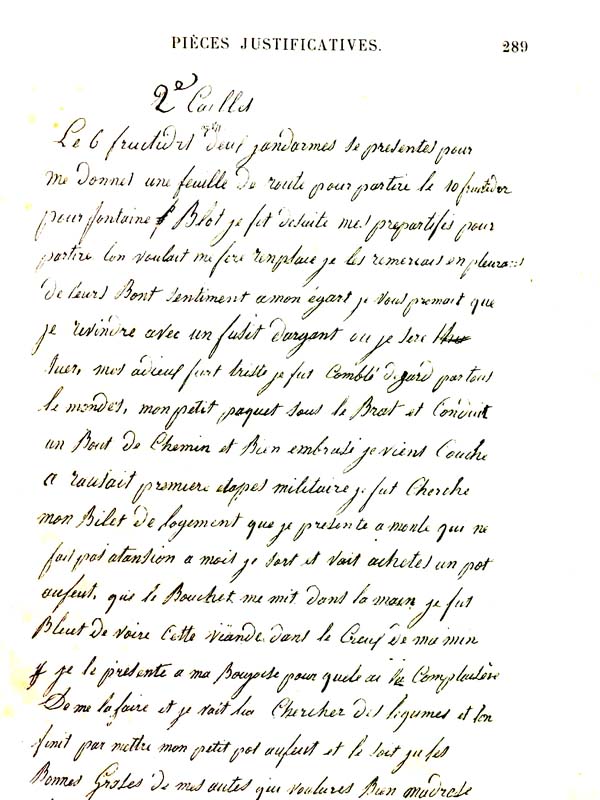 PIÈCES JUSTIFICATIVES. 289
2e Caillet
Le 6 fructidor deux jandarmes se presentes pour
me donnes une feuille de route pour partire le 10 fructidor
pour fontaine Blot je fit desuite mes prepartifs pour
partire lon voulait me fere renplace je les remerciais en pleurant
de leurs Bont sentiment a mon égart je vous promait que
je revindre avec un fusit dargant ou je sere
tuer, mes adieux furt triste je fut Comblé degard par tous
le mondes, mon petit paquet sous le Brat et Conduit
un Bout de Chemin et Bien embrasé je viens Couche
a rausait premiere etapes militaire je fut Cherche
mon Bilet de logement que je presente a monte qui ne
fait pas atansion a mois je sort et vait achetes un pot
aufeut, que le Bouchet me mit dans la main je fut
Bleut de voire Cette viande dans le Creux de ma min
je le presente a ma Bougoise pour quele ai la Complaisére
De me la faire et je vait lui Chercher des legumes et lon
finit par mettre mon petit pot aufeut et le soit ju les
Bonnes Grases de mes autes qui voulures Bien madrese